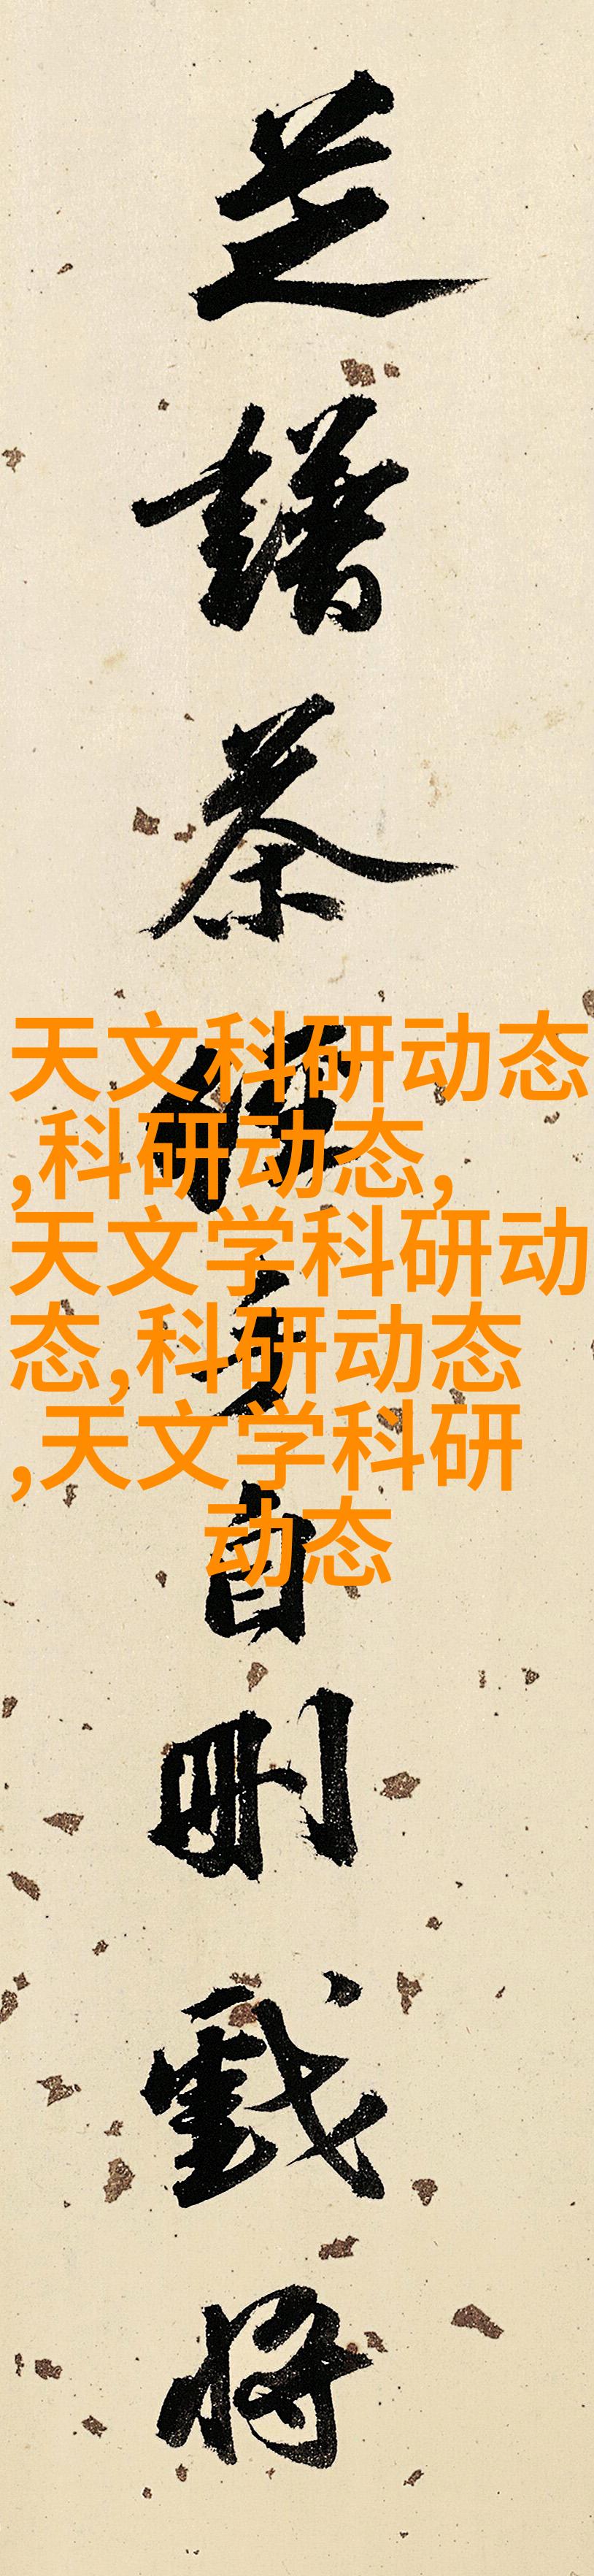 芝譜茶經手自刪戲將
天文科研动态
,科研动态,
天文学科研动
态,科研动态
,天文学科研
动态